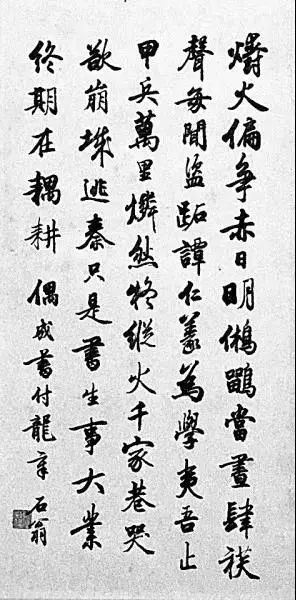 爝火偏爭赤日明鵂鶹當晝肆祅
聲每聞盜跖譚仁義為學夷吾止
甲兵萬里燐然將縱火千家巷哭
欲崩城逃秦只是書生事大業
終期在耦耕偶成書付龍章石翁